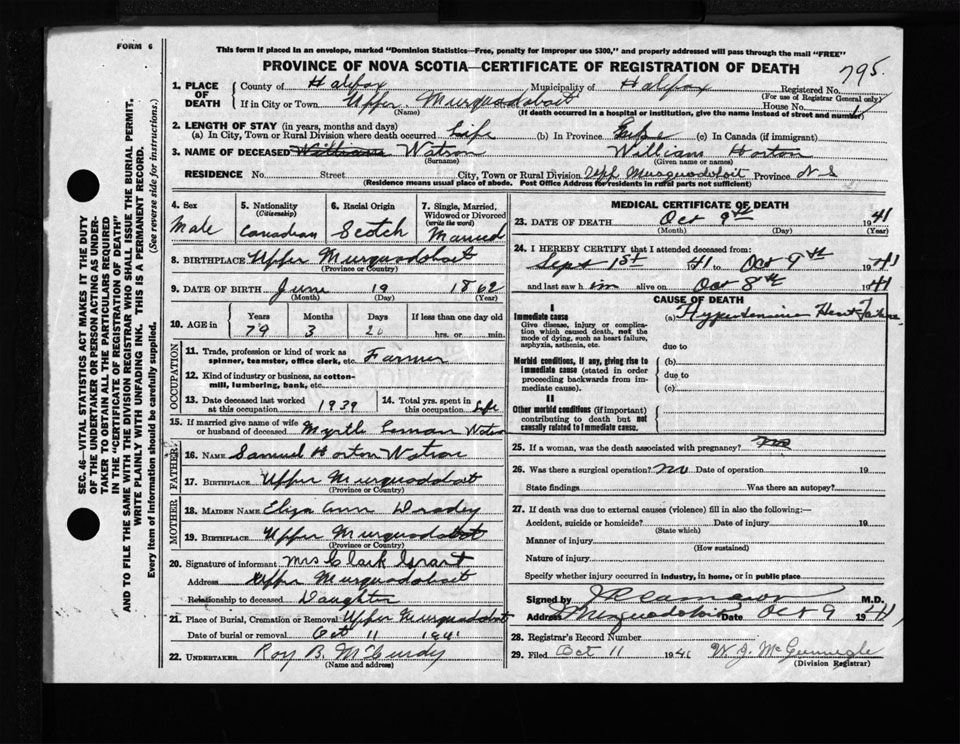 FORM 6
This form if placed in an envelope, marked "Dominion Statistics—Free, penalty for improper use $300," and properly addressed will pass through the mail "FREE"
PROVINCE OF NOVA SCOTIA—CERTIFICATE OF REGISTRATION OF DEATH
795.
1. PLACE OF DEATH
County of Halifax Municipality of Halifax Registered No.
(For use of Registrar General only)
If in City or Town Upper Musquodoboit House No.
(Name) (If death occurred in a hospital or institution, give the name instead of street and number)
2. LENGTH OF STAY (in years, months and days)
(a) In City, Town or Rural Division where death occurred Life (b) In Province Life (c) In Canada (if immigrant)
3. NAME OF DECEASED William Watson William Horton
(Surname) (Given name or names)
RESIDENCE No. Street City, Town or Rural Division Upp Musquodoboit Province N S
(Residence means usual place of abode. Post Office Address for residents in rural parts not sufficient)
4. Sex Male
5. Nationality (Citizenship) Canadian
6. Racial Origin Scotch
7. Single, Married, Widowed or Divorced (write the word) Married
8. BIRTHPLACE Upper Musquodoboit
(Province or Country)
9. DATE OF BIRTH June 19 1862
(Month) (Day) (Year)
10. AGE in Years Months Days If less than one day old
79 3 20 hrs. or min.
OCCUPATION
11. Trade, profession or kind of work as spinner, teamster, office clerk, etc. Farmer
12. Kind of industry or business, as cotton-mill, lumbering, bank, etc.
13. Date deceased last worked at this occupation 1939
14. Total yrs. spent in this occupation Life
15. If married give name of wife or husband of deceased Myrtle Watson
FATHER
16. NAME Samuel Horton Watson
17. BIRTHPLACE Upper Musquodoboit
(Province or Country)
MOTHER
18. MAIDEN NAME Eliza Ann
19. BIRTHPLACE Upper Musquodoboit
(Province or Country)
20. Signature of informant Mrs Clark Grant
Address Upper Musquodoboit
Relationship to deceased Daughter
21. Place of Burial, Cremation or Removal Upper Musquodoboit
Date of burial or removal Oct 11 1941
22. UNDERTAKER Roy B. McCurdy
(Name and address)
MEDICAL CERTIFICATE OF DEATH
23. DATE OF DEATH Oct 9th 1941
(Month) (Day) (Year)
24. I HEREBY CERTIFY that I attended deceased from:
Sept 1st 41 to Oct 9th 1941
and last saw him alive on Oct 8th 1941
CAUSE OF DEATH
I
Immediate cause
Give disease, injury or complication which caused death, not the mode of dying, such as heart failure, asphyxia, asthenia, etc.
(a) Hypertensive Heart Failure
due to
Morbid conditions, if any, giving rise to immediate cause (stated in order proceeding backwards from immediate cause).
(b)
due to
(c)
II
Other morbid conditions (if important) contributing to death but not causally related to immediate cause.
25. If a woman, was the death associated with pregnancy? no
26. Was there a surgical operation? No Date of operation 19
State findings Was there an autopsy?
27. If death was due to external causes (violence) fill in also the following:—
Accident, suicide or homicide? Date of injury 19
(State which)
Manner of injury
(How sustained)
Nature of injury
Specify whether injury occurred in industry, in home, or in public place
Signed by M.D.
Address Musquodoboit Date Oct 9 1941
28. Registrar's Record Number
29. Filed Oct 11 1941 W. J.
(Division Registrar)
SEC. 46—VITAL STATISTICS ACT MAKES IT THE DUTY
OF THE UNDERTAKER OR PERSON ACTING AS UNDER-
TAKER TO OBTAIN ALL THE PARTICULARS REQUIRED
IN THE "CERTIFICATE OF REGISTRATION OF DEATH"
AND TO FILE THE SAME WITH THE DIVISION REGISTRAR WHO SHALL ISSUE THE BURIAL PERMIT,
WRITE PLAINLY WITH UNFADING INK. THIS IS A PERMANENT RECORD.
Every item of Information should be carefully supplied. (See reverse side for instructions.)